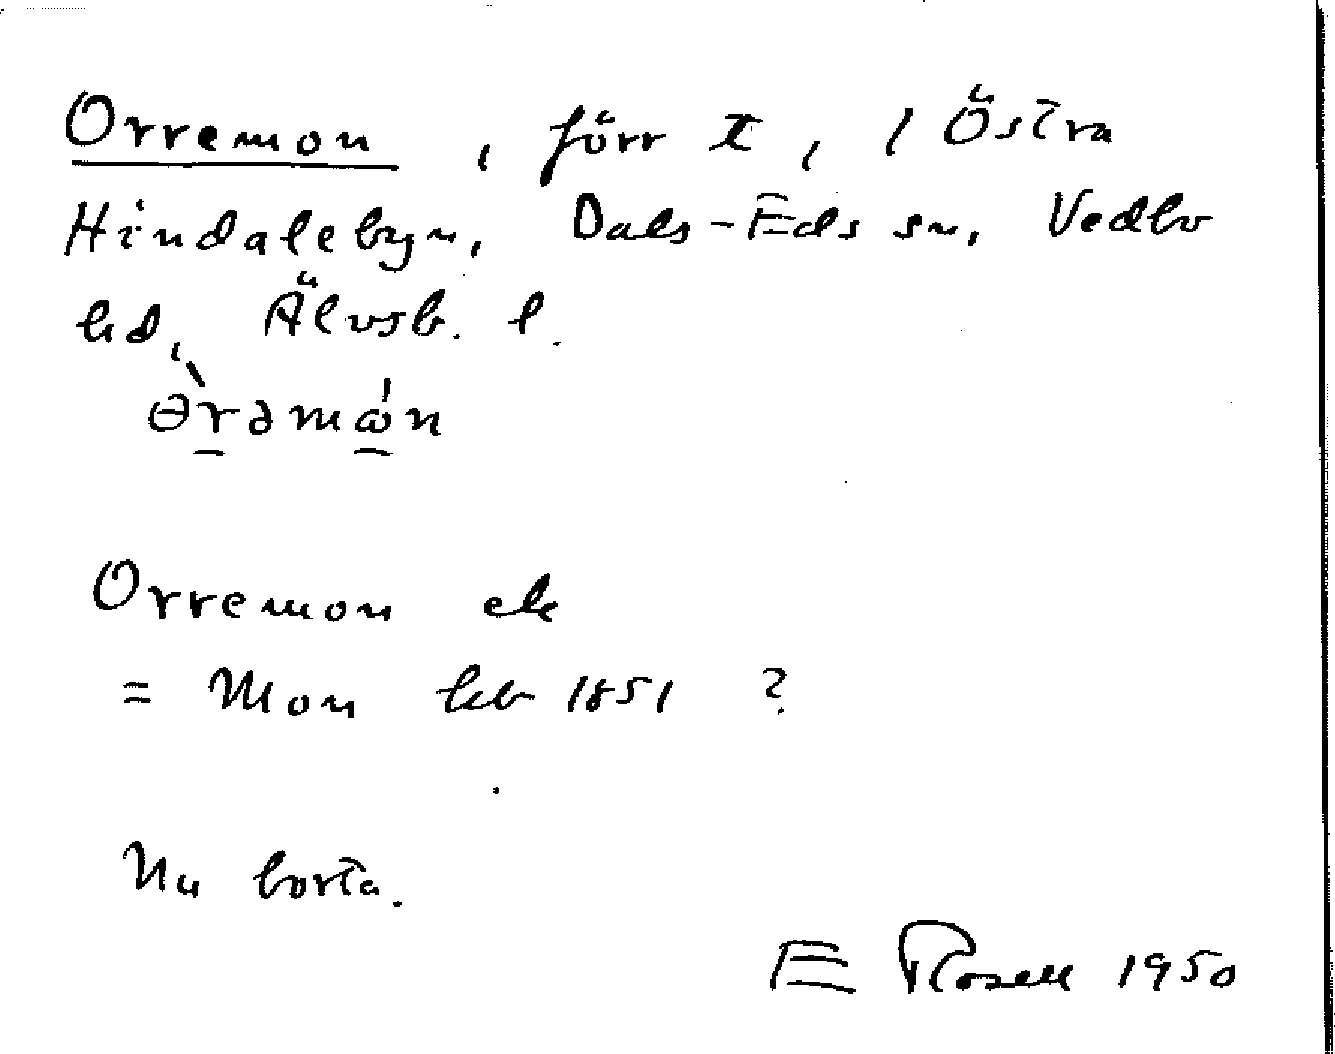 Orremon, förr t, i Östra
Hindalebyn, Dals-Eds sn, Vedbo
hd, Älvsb. l.
ɵ̀rəmɷ́n
Orremon ek
= Mon hb 1851 ?
Nu borta.
E Rosell 1950